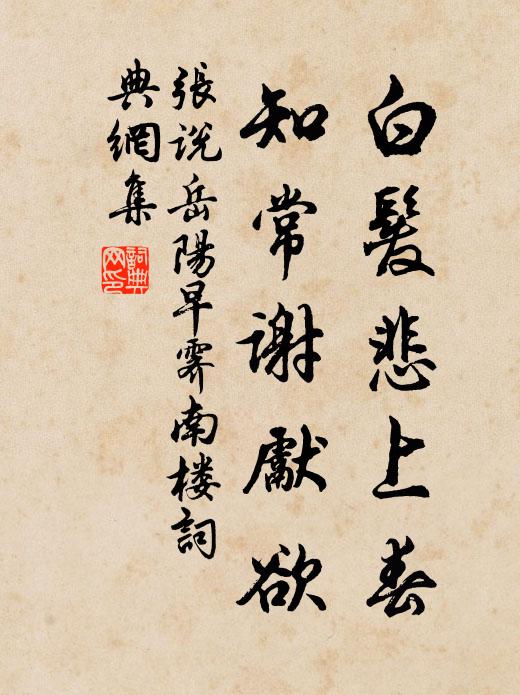 白髮悲上春
知常謝獻欲
張説岳陽早霽南楼詞
典網集
詞典
网印